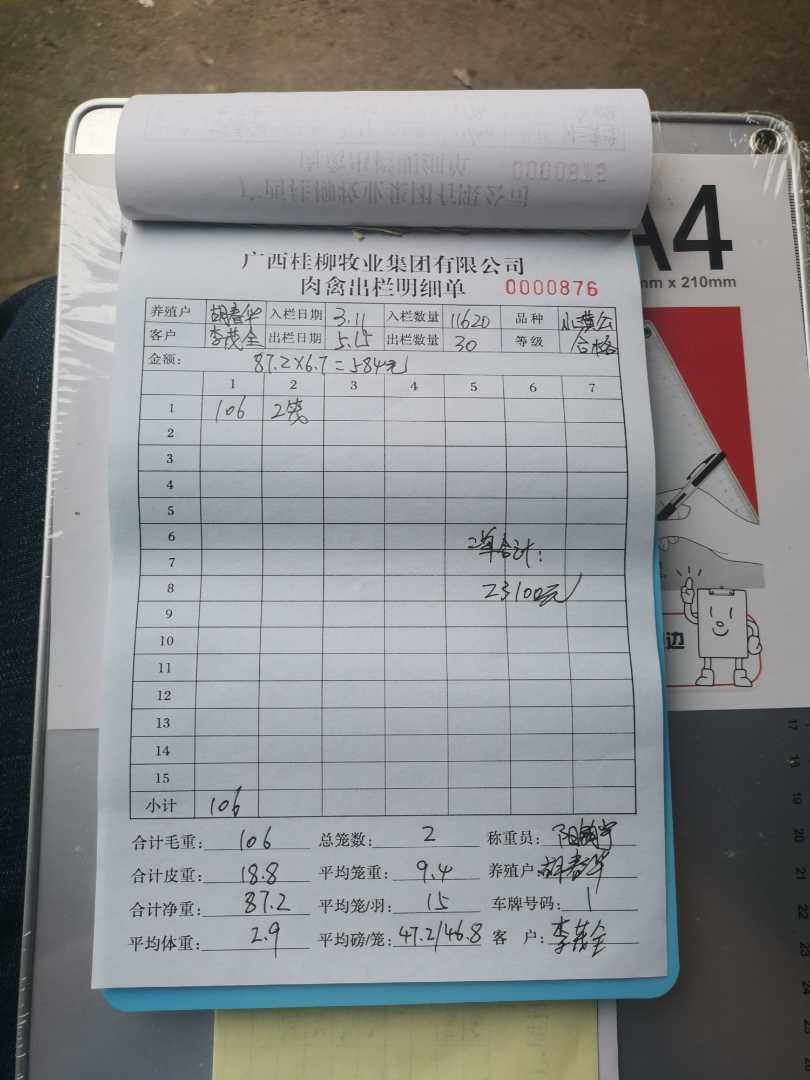 A4
mm x 210mm
广西桂柳牧业集团有限公司
肉禽出栏明细单 0000876
养殖户 胡春华 入栏日期 3.11 入栏数量 11620 品种
客户 李茂全 出栏日期 5.15 出栏数量 30 等级 合格
金额: 87.2×6.7=584元
1 2 3 4 5 6 7
1 106 2笼
2
3
4
5
6 二单合计:
7
8 23100元
9
10
11
12
13
14
15
小计 106
合计毛重: 106 总笼数: 2 称重员:
合计皮重: 18.8 平均笼重: 9.4 养殖户: 胡春华
合计净重: 87.2 平均笼/羽: 15 车牌号码: 1
平均体重: 2.9 平均磅/笼: 47.2/46.8 客 户: 李茂全
边
17
18
19
20
21
22
23
24
25